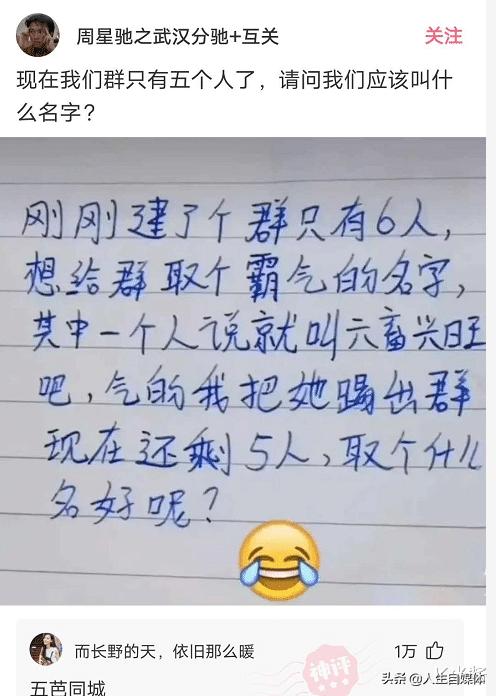 周星驰之武汉分驰+互关
关注
现在我们群只有五个人了，请问我们应该叫什
么名字？
刚刚建了个群只有6人，
想给群取个霸气的名字，
其中一个人说就叫六畜兴旺
吧，气的我把她踢出群
现在还剩5人，取个什么
名好呢？
而长野的天，依旧那么暖
1万
神评
五芭同城
头条@人生自媒体